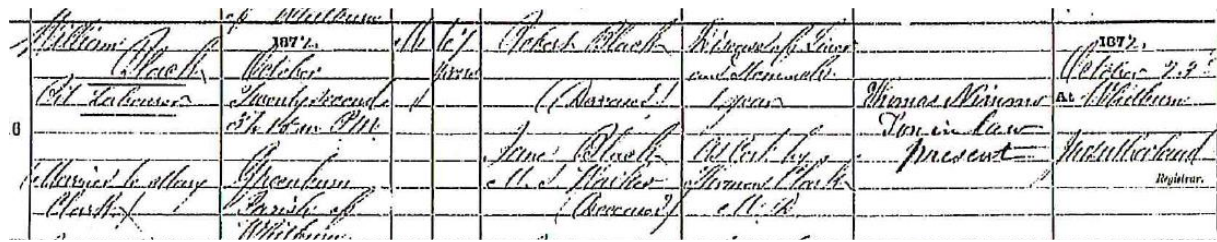 William
Black
Pit Labourer
(Married to Mary
Clark)
of Whitburn
1872,
October
Twentysecond
3h 15m PM
Greenburn
Parish of
Whitburn
M
67
years
Robert Black
(Deceased)
Jane Black
M.S. Walker
(Deceased)
Disease of Liver
and Stomach
1 year
As Cert by
Clark
Thomas Nimmo
Son in law
present
1872,
October 23d
At Whitburn
Registrar.
6